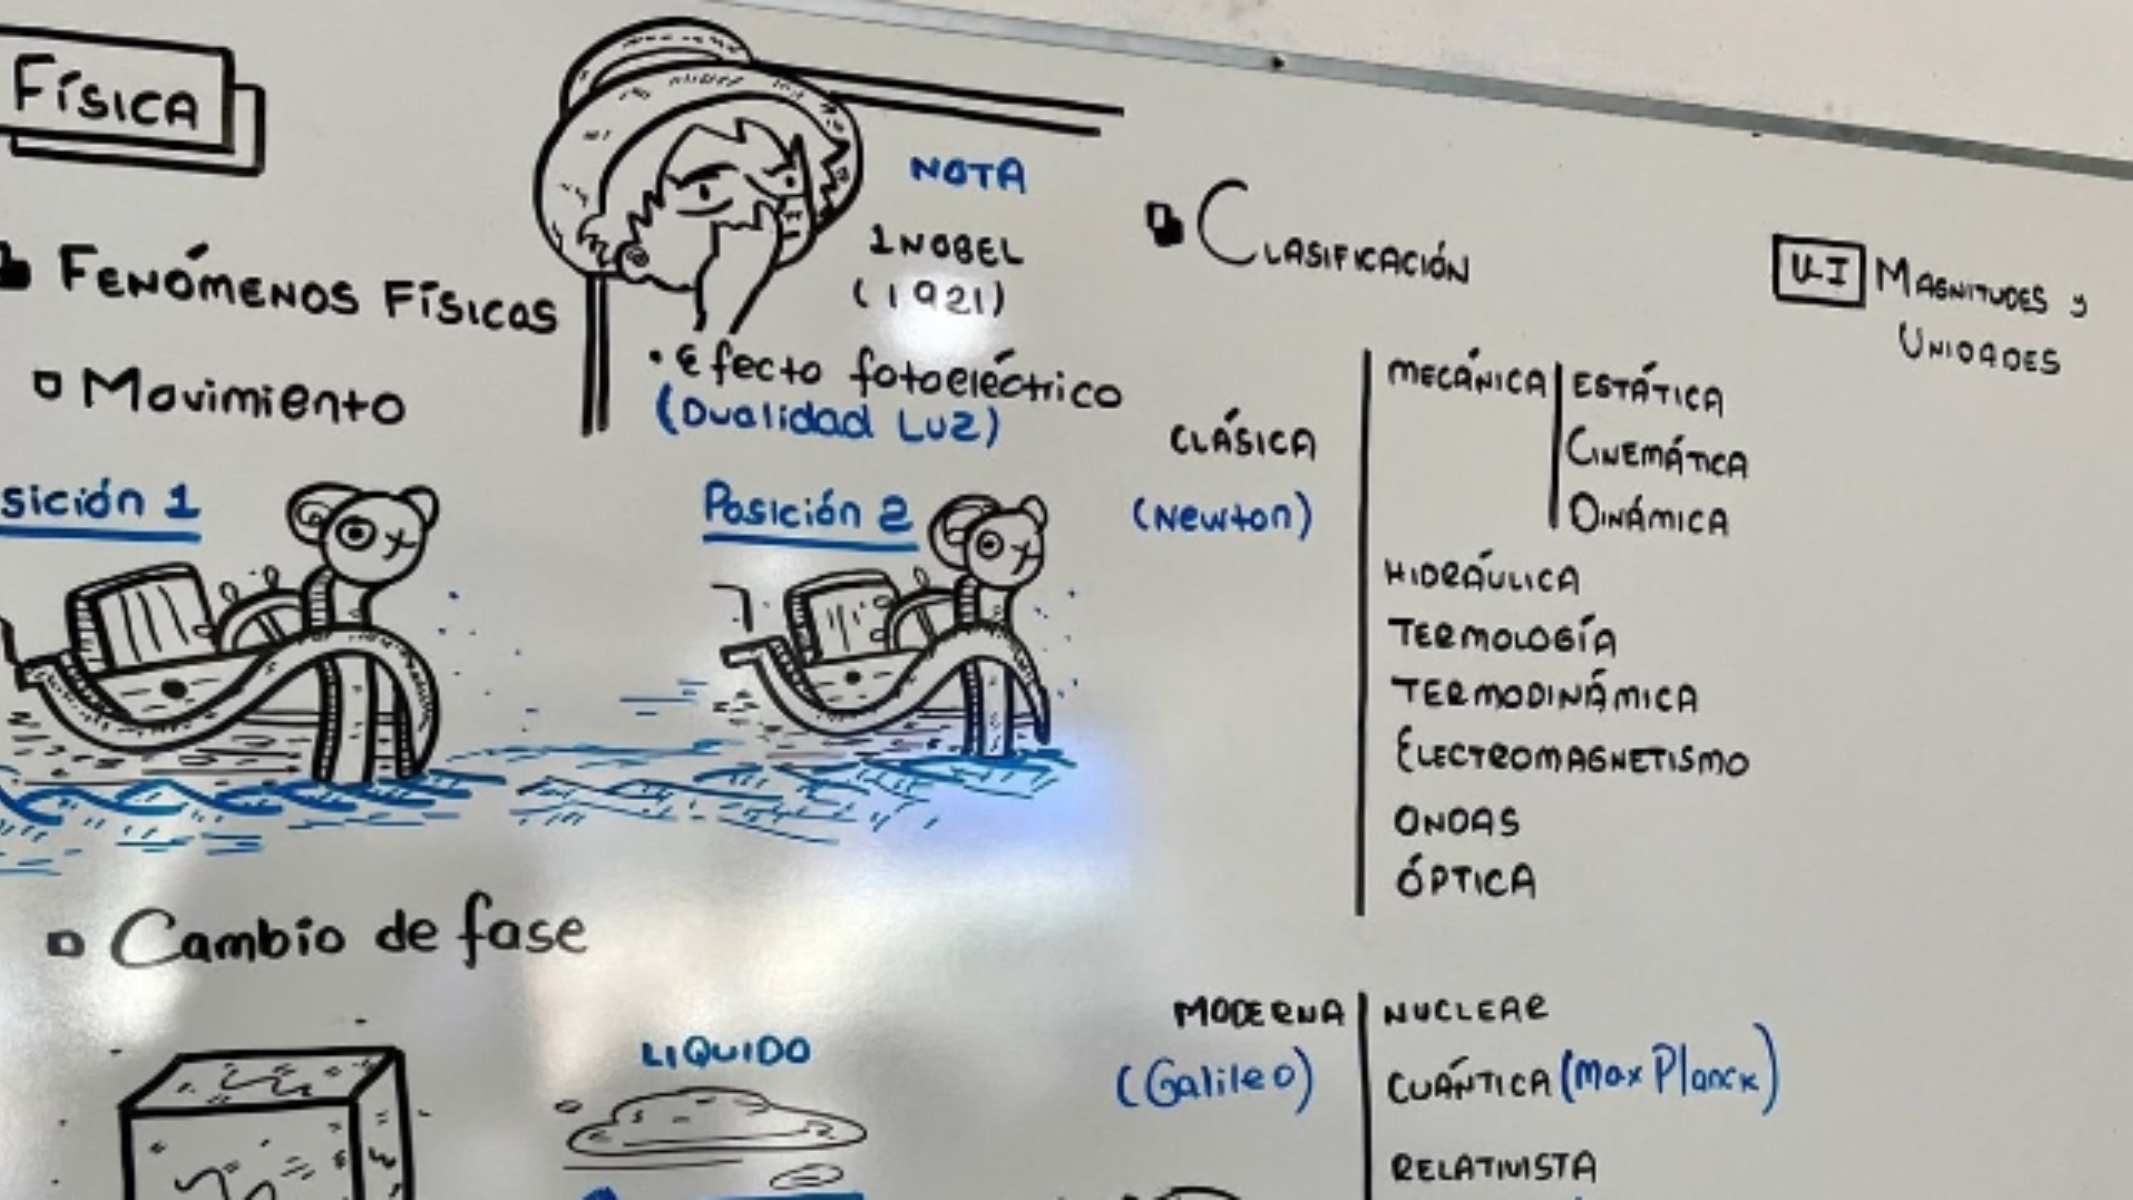 FÍSICA
FENÓMENOS FÍSICOS
Movimiento
sición 1
Posición 2
NOTA
1 NOBEL
(1921)
• Efecto fotoeléctrico
(Dualidad LUZ)
Cambio de fase
LIQUIDO
CLASIFICACIÓN
CLÁSICA
(Newton)
MECÁNICA
ESTÁTICA
CINEMÁTICA
DINÁMICA
HIDRÁULICA
TERMOLOGÍA
TERMODINÁMICA
ELECTROMAGNETISMO
ONDAS
ÓPTICA
MODERNA
(Galileo)
NUCLEAR
CUÁNTICA (Max Planck)
RELATIVISTA
U-I MAGNITUDES y
UNIDADES